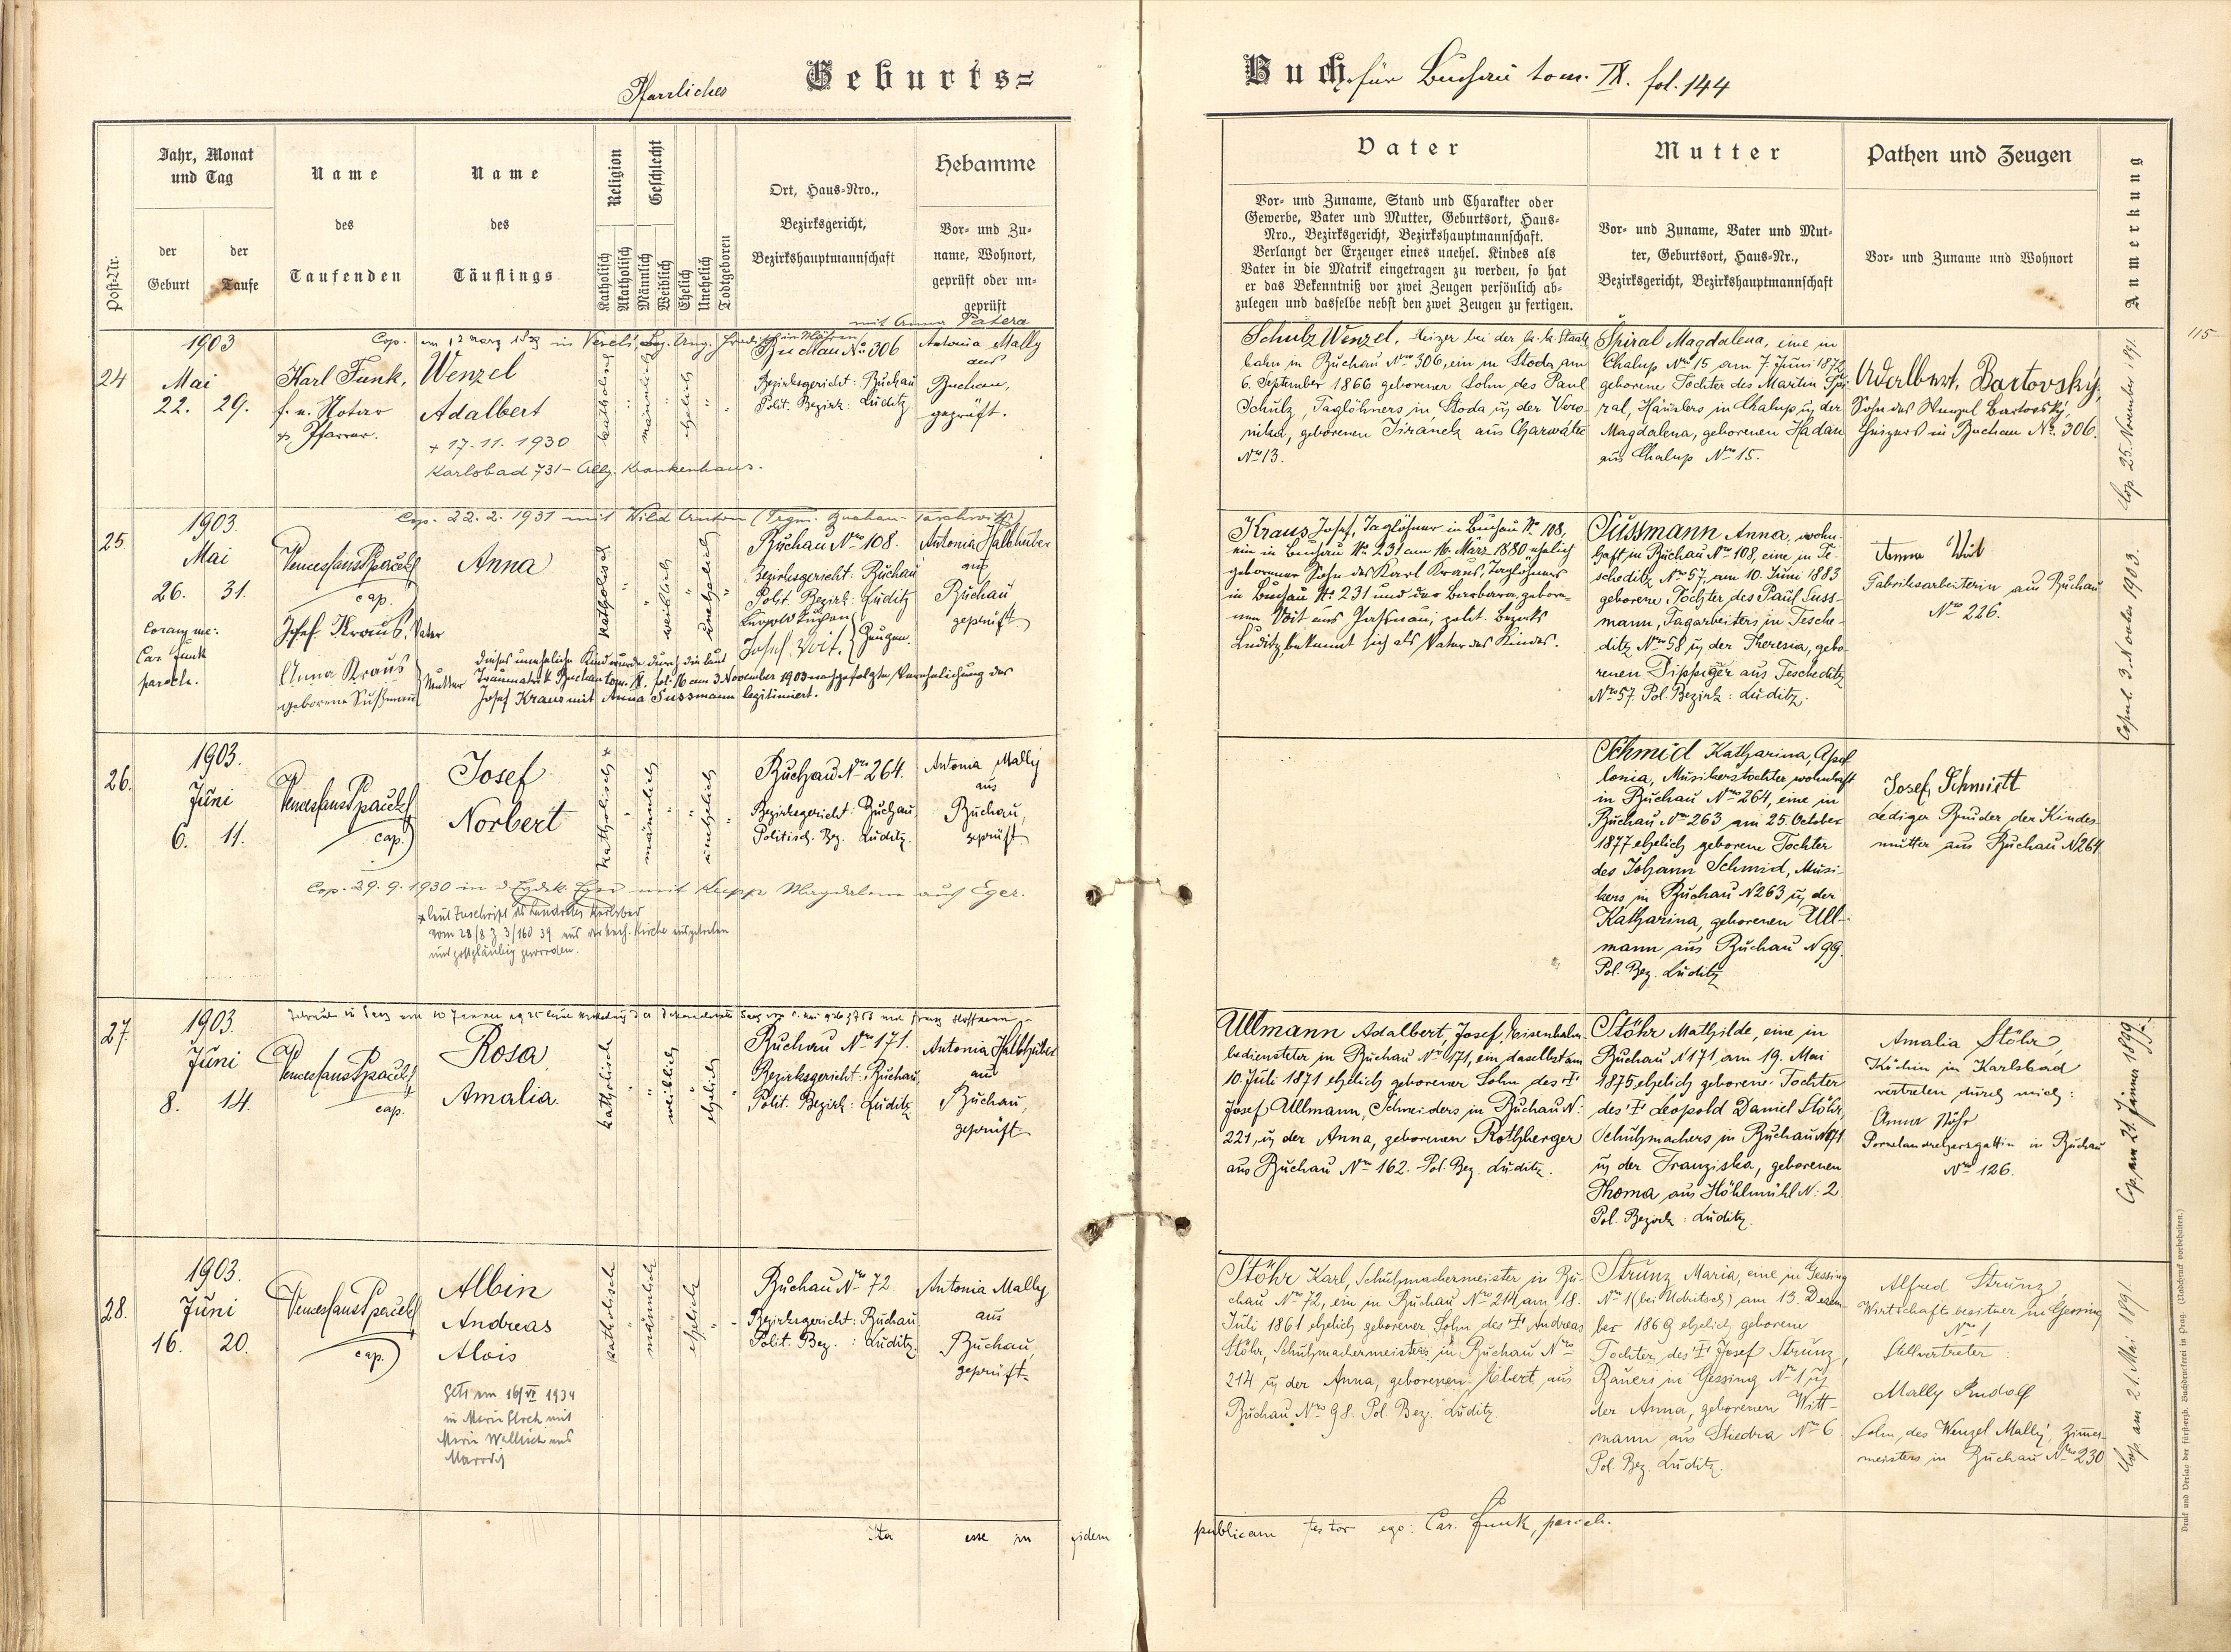 Pfarrliches Geburts=
Buch für Buchau tom. IX. fol. 144
Post-Nr.
Jahr, Monat
und Tag
der
Geburt
der
Taufe
Name
des
Taufenden
Name
des
Täuflings
Religion
Katholisch
Akatholisch
Geschlecht
Männlich
Weiblich
Ehelich
Unehelich
Todtgeboren
Ort, Haus=Nro.,
Bezirksgericht,
Bezirkshauptmannschaft
Hebamme
Vor= und Zu=
name, Wohnort,
geprüft oder un=
geprüft
Vater
Vor= und Zuname, Stand und Charakter oder
Gewerbe, Vater und Mutter, Geburtsort, Haus=
Nro., Bezirksgericht, Bezirkshauptmannschaft.
Verlangt der Erzeuger eines unehel. Kindes als
Vater in die Matrik eingetragen zu werden, so hat
er das Bekenntniß vor zwei Zeugen persönlich ab=
zulegen und dasselbe nebst den zwei Zeugen zu fertigen.
Mutter
Vor= und Zuname, Vater und Mut=
ter, Geburtsort, Haus=Nr.,
Bezirksgericht, Bezirkshauptmannschaft
Pathen und Zeugen
Vor= und Zuname und Wohnort
Anmerkung
115
mit Anna Patera
Cop. am 12 März in Bez. Ung. in Mähren
24
1903
Mai
22. 29.
Karl Funk,
f. e. Notar
Pfarrer.
Wenzel
Adalbert
+ 17. 11. 1930
Karlsbad 731 - Allg. Krankenhaus.
katholisch
männlich
ehelich
Buchau No 306
Bezirksgericht: Buchau
Polit. Bezirk: Luditz
Antonia Mally
aus
Buchau,
geprüft.
Schulz Wenzel, Heizer bei der k. k. Staats
bahn in Buchau Nro 306, ein in Stoda am
6. September 1866 geborener Sohn des Paul
Schulz, Taglöhners in Stoda u der Vero-
nika, geborenen Jiranek aus Charwáte
Nro 13.
Spiral Magdalena, eine in
Chalup Nro 15 am 7. Juni 1872
geborene Tochter des Martin Spi-
ral, Häuslers in Chalup u der
Magdalena, geborenen Hadan
aus Chalup Nro 15.
Adalbert Bartovský,
Sohn des Wenzel Bartovský,
Heizers in Buchau No. 306.
Cop. 25. November 1891.
Cop. 22. 2. 1931 mit Wild Anton
25
1903.
Mai
26. 31.
coram me:
Car. Funk
paroch.
Wenceslaus
cap.
Josef Kraus, Vater
Anna Kraus
geborene Sußmann
Mutter
Anna
katholisch
weiblich
unehelich
Buchau Nro 108.
Bezirksgericht: Buchau
Polit. Bezirk: Luditz
Josef Voit,
Zeugen.
Antonia Halbhuber
aus
Buchau
geprüft
Dieses uneheliche Kind wurde durch die laut
Traumatrik Buchau tom. IX. fol. 16 am 3. November 1903 nachgefolgte Verehelichung des
Josef Kraus mit Anna Sussmann legitimiert.
Kraus Josef, Taglöhner in Buchau No 108,
ein in Buchau No. 231 am 16. März 1880 ehelich
geborener Sohn des Karl Kraus, Taglöhners
in Buchau No. 231 und der Barbara, gebore-
nen Voit aus polit. Bezirks
Luditz, bekennt sich als Vater des Kindes.
Sussmann Anna, wohn-
haft in Buchau Nro 108, eine in Te-
scheditz Nro 57, am 10. Juni 1883
geborene Tochter des Paul Suss-
mann, Tagarbeiters in Tesche-
ditz Nro 58 u der Theresia, gebo-
renen Dippiger aus Tescheditz
Nro 57. Pol. Bezirk: Luditz.
Anna
Fabriksarbeiterin aus Buchau
Nro 226.
3. November 1903.
26.
1903.
Juni
6. 11.
Wenceslaus
cap.
Josef
Norbert
katholisch
männlich
unehelich
Buchau Nro 264.
Bezirksgericht: Buchau,
Politisch. Bez. Luditz.
Antonia Mally
aus
Buchau,
geprüft
Cop. 29. 9. 1930 in mit Magdalena aus Eger.
laut Zuschrift des Landrates Karlsbad
vom 28/8 Z 3/160 39 aus der kath. Kirche ausgetreten
und gottgläubig geworden.
Schmid Katharina, Apol
lonia, Musikerstochter, wohnhaft
in Buchau Nro 264, eine in
Buchau Nro 263 am 25. October
1877 ehelich geborene Tochter
des Johann Schmid, Musi-
kers in Buchau N 263 u der
Katharina, geborenen Ull-
mann aus Buchau N 99.
Pol. Bez. Luditz
Josef Schmidt
Lediger Bruder der Kindes
mutter aus Buchau N 264
27.
1903.
Juni
8. 14.
Wenceslaus
cap.
Rosa
Amalia.
katholisch
weiblich
ehelich
Buchau Nro 171.
Bezirksgericht: Buchau,
Polit. Bezirk: Luditz
Antonia Halbhuber
aus
Buchau,
geprüft
Ullmann Adalbert, Josef, Eisenbahn-
bediensteter in Buchau Nro 171, ein daselbst am
10. Juli 1871 ehelich geborener Sohn des †
Josef Ullmann, Schneiders in Buchau N:
221, u der Anna, geborenen Rothberger
aus Buchau Nro 162. Pol. Bez. Luditz.
Stöhr Mathilde, eine in
Buchau N 171 am 19. Mai
1875 ehelich geborene Tochter
des † Leopold Daniel Stöhr,
Schuhmachers in Buchau N 171
u der Franziska, geborenen
Thoma aus Höhlmühl N: 2
Pol. Bezirk: Luditz.
Amalia Stöhr,
Köchin in Karlsbad
vertreten durch mich:
Anna Stöhr
Porzelandrehersgattin in Buchau
Nro 126.
Cop. am 21. Jänner 1899.
28.
1903.
Juni
16. 20.
Wenceslaus
cap.
Albin
Andreas
Alois
am 16/VI 1934
in mit
Marie aus
katholisch
männlich
ehelich
Buchau Nro 72
Bezirksgericht: Buchau,
Polit. Bez.: Luditz.
Antonia Mally
aus
Buchau,
geprüft.
Stöhr Karl, Schuhmachermeister in Bu-
chau Nro 72, ein in Buchau Nro 214 am 18.
Juli 1861 ehelich geborener Sohn des † Andreas
Stöhr, Schuhmachermeisters in Buchau Nro
214 u der Anna, geborenen Eibert aus
Buchau Nro 98. Pol. Bez. Luditz
Strunz Maria, eine in Gessing
Nro 1 (bei Udritsch) am 13. Dezem-
ber 1869 ehelich geborene
Tochter des † Josef Strunz,
Bauers in Gessing Nro 1 u
der Anna, geborenen Witt-
mann aus Stiedra Nro 6
Pol. Bez. Luditz.
Alfred Strunz
Wirtschaftsbesitzer in Gessing
Nro 1
Stellvertreter:
Mally Rudolf
Sohn des Wenzel Mally, Zimmer-
meisters in Buchau Nro 230
Cop. am 21. Mai 1891.
Ita esse in fidem
publicam testor ego: Car. Funk, paroch.
Druck und Verlag der fürsterzb. Buchdruckerei in Prag. (Nachdruck vorbehalten.)